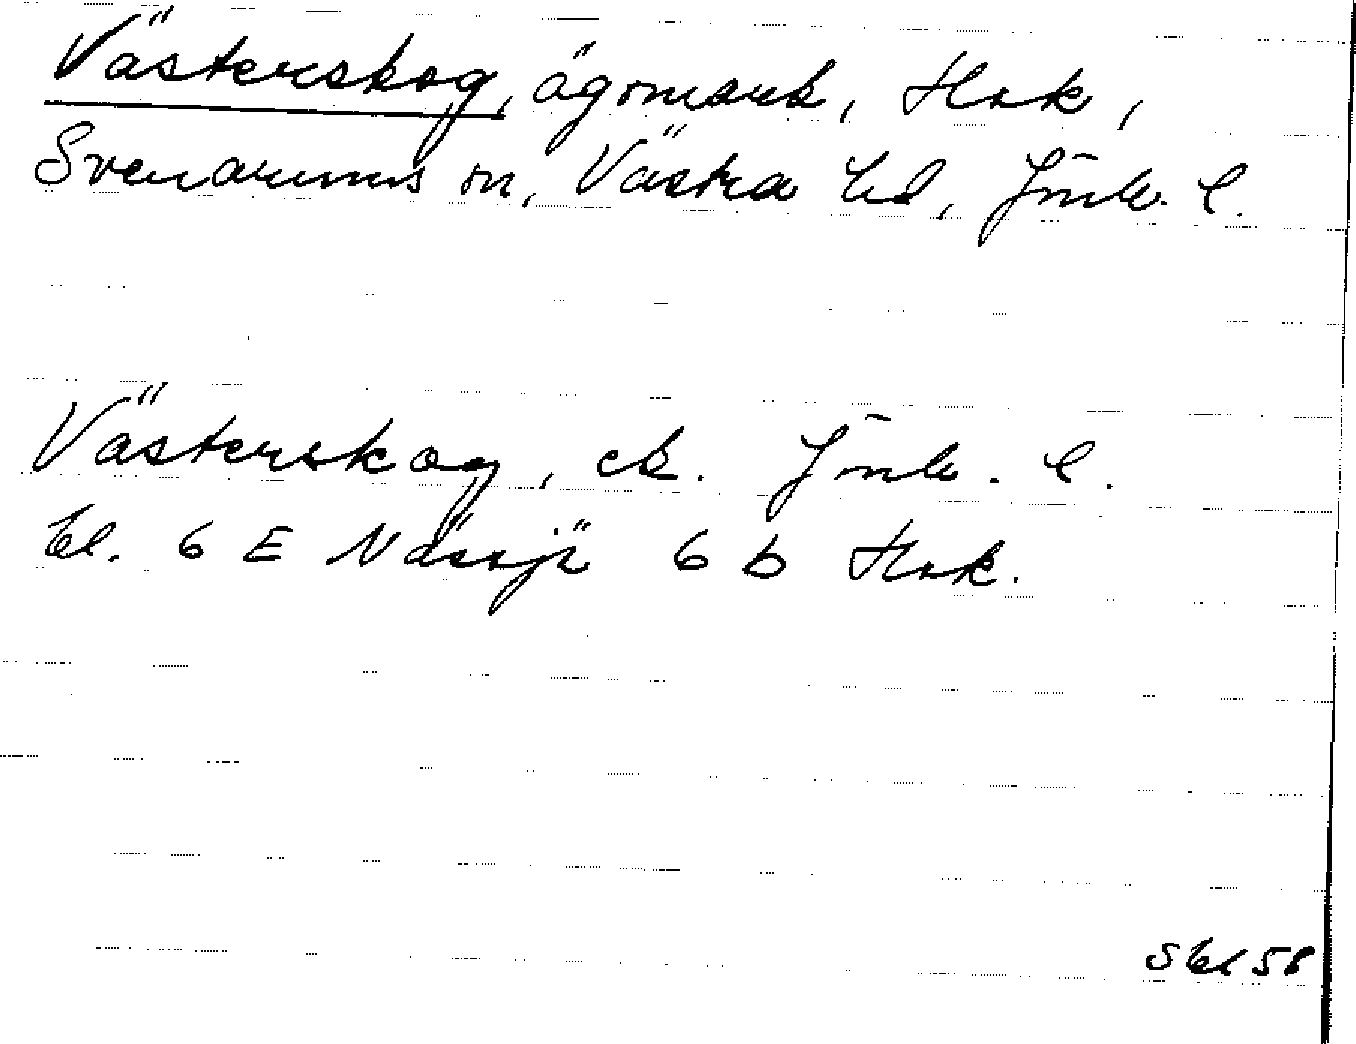 Västerskog, ägomark, Hok,
Svenarums sn, Västra hd, Jönk. l.
Västerskog, ek. Jönk. l.
bl. 6 E Nässjö 6 b Hok.